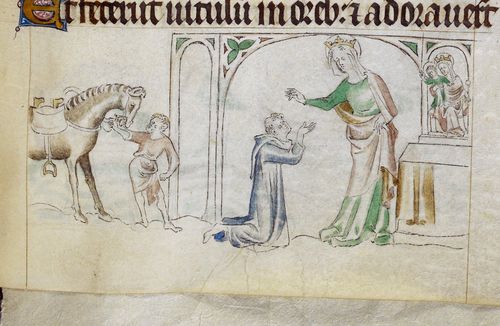 Et fecerut uitulu in oreb: ⁊ adorauert